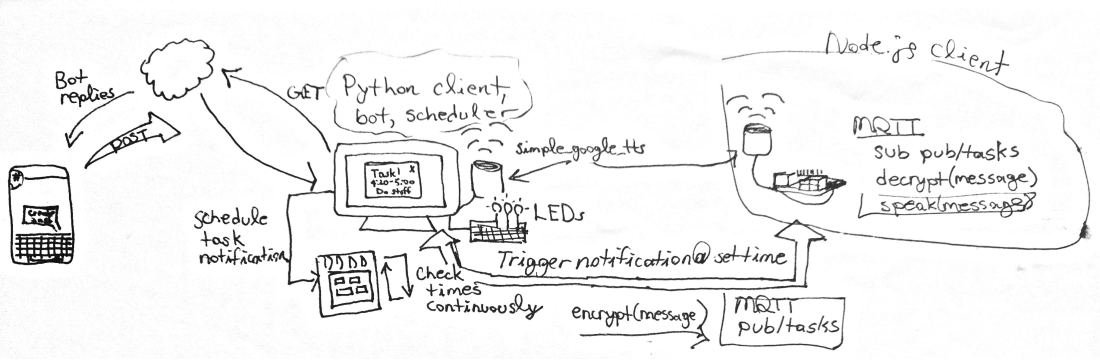 Node.js client
Bot
replies
GET
Python client,
bot, scheduler
POST
simple_google_tts
MQTT
sub pub/tasks
decrypt(message)
speak(message)
Task!  X
4:20-5:00
Do stuff
LEDs
schedule
task
notification
Check
times
continuously
Trigger notification @ set time
encrypt(message)
MQTT
pub/tasks